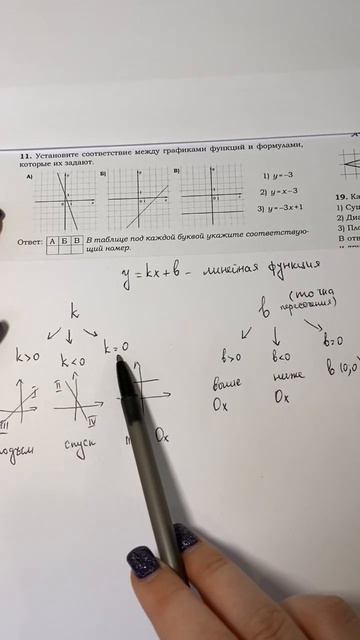 11. Установите соответствие между графиками функций и формулами,
которые их задают.
А)
Б)
В)
1) y=-3
2) y=x-3
3) y=-3x+1
Ответ: А Б В
В таблице под каждой буквой укажите соответствую-
щий номер.
19. Ка
1) Сущ
3) Пло
В отв
y = kx+b - линейная функция
k
b (точка
пересечения)
k>0
k<0
k=0
b>0
b<0
b=0
выше
Ox
ниже
Ox
в (0,0
I
III
II
IV
подъём
спуск
Ox